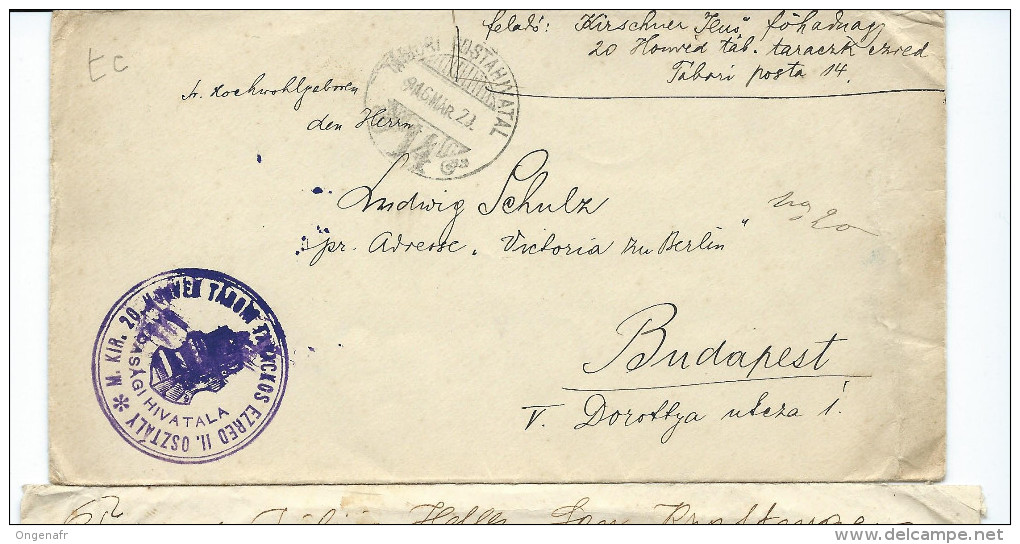 feladó: Kirschner Jenő főhadnagy
20 Honvéd táb. taraczk ezred
Tábori posta 14.
EC
TÁBORI POSTAHIVATAL
916 MÁR. 23.
14
Sr. Hochwohlgeboren
den Herrn
Ludwig Schulz
pr. Adresse „Victoria zu Berlin"
20
Budapest
V. Dorottya utcza 1.
M. KIR. 20. HONVÉD TÁBORI TARACKOS EZRED II. OSZTÁLY
HIVATALA
Ongenafr
delcampe.net